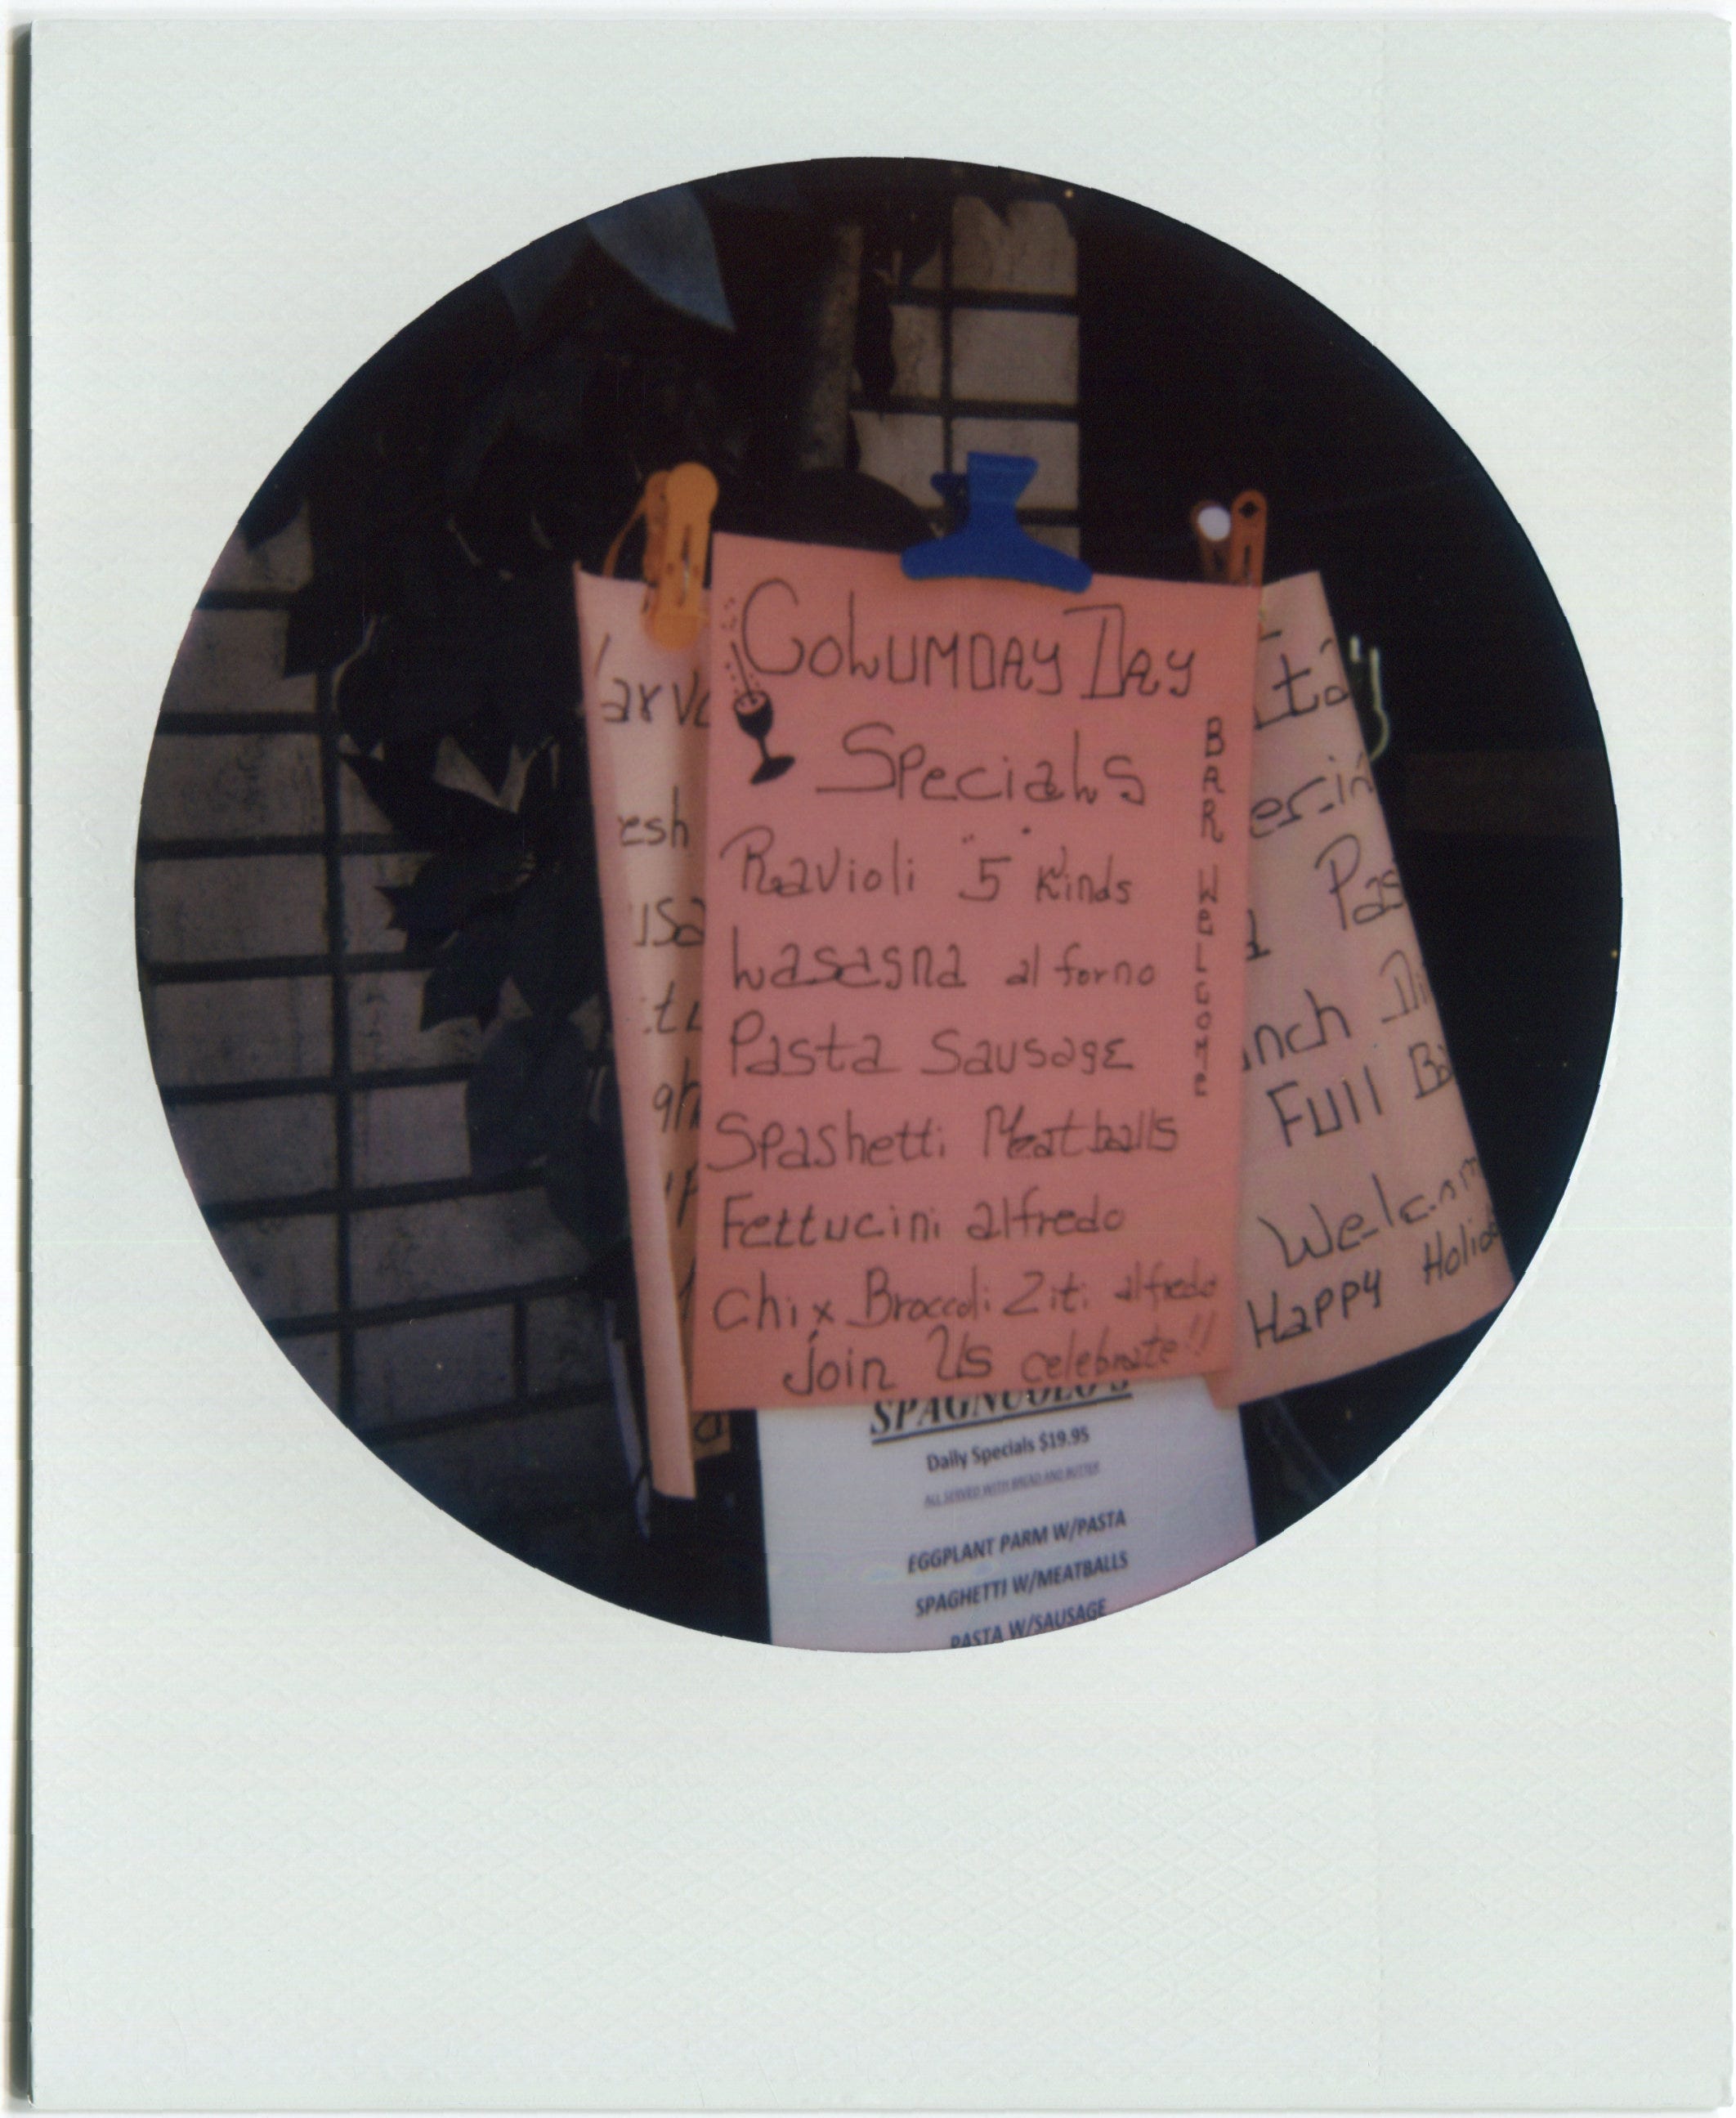 Columday Day
Specials
Ravioli "5" Kinds
Lasasna al forno
Pasta Sausage
Spashetti Meatballs
Fettucini alfredo
Chix Broccoli Ziti alfredo
Join Us celebrate!!
BAR WELCOME
esh
Pas
nch Di
Full Ba
Welcom
Happy Holid
SPAGNUOLO'S
Daily Specials $19.95
ALL SERVED WITH BREAD AND BUTTER
EGGPLANT PARM W/PASTA
SPAGHETTI W/MEATBALLS
PASTA W/SAUSAGE